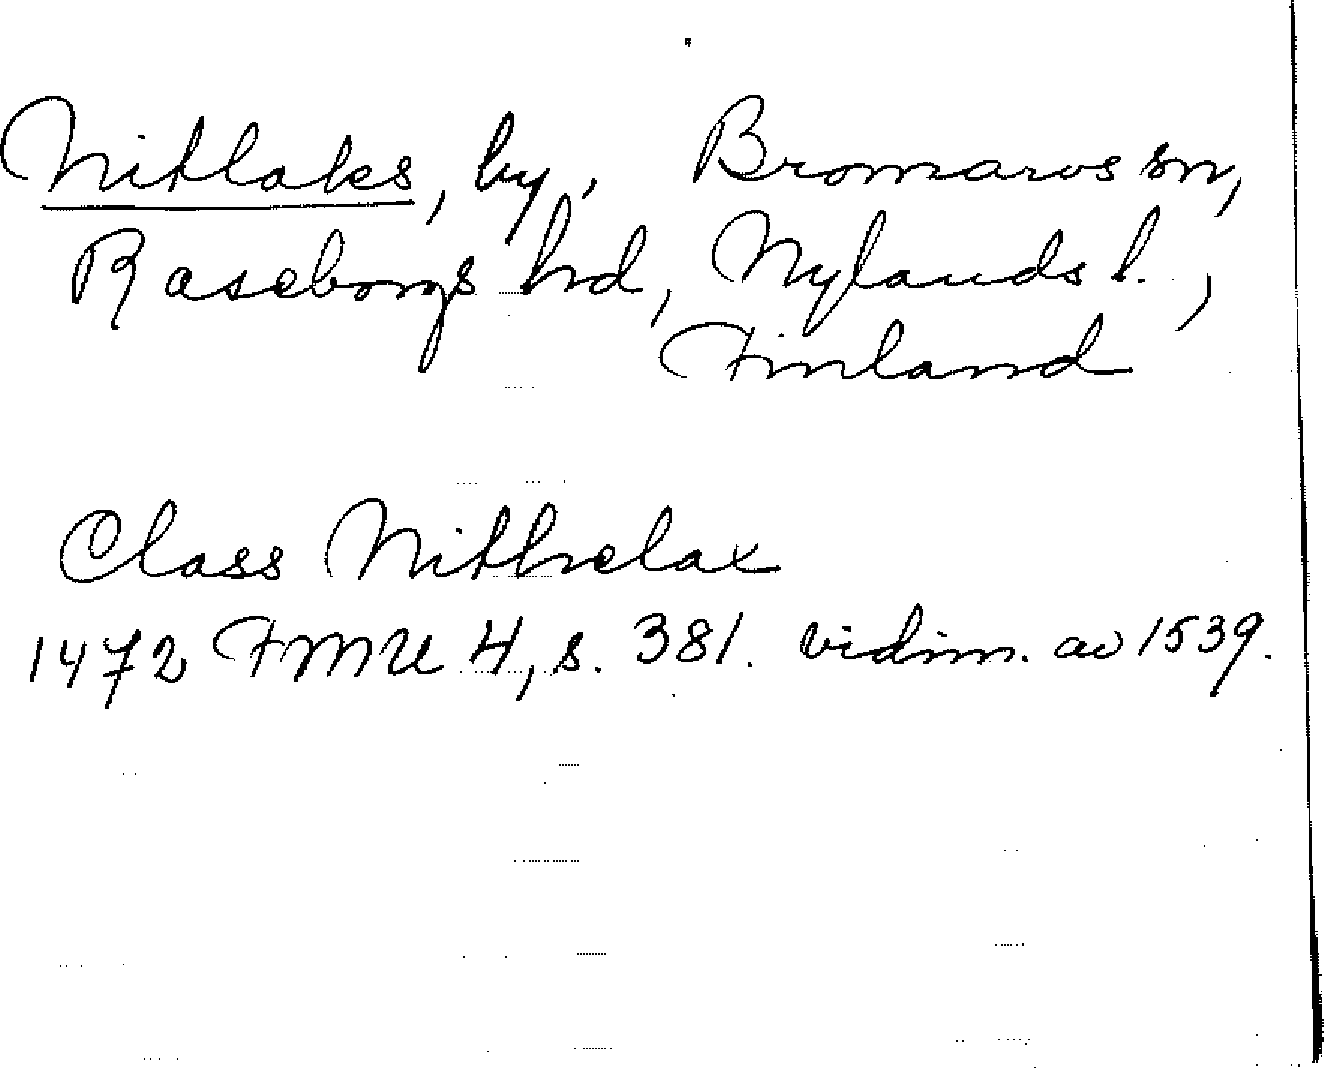 Nitlaks, by, Bromarvs sn,
Raseborgs hd, Nylands l.,
Finland
Class Nithelax
1472 FMU 4, s. 381. vidim. av 1539.